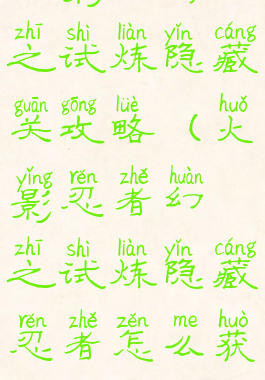 zhī shì liàn yǐn cáng
之试炼隐藏
guān gōng lüè huǒ
关攻略（火
yǐng rěn zhě huàn
影忍者幻
zhī shì liàn yǐn cáng
之试炼隐藏
rěn zhě zěn me huò
忍者怎么获